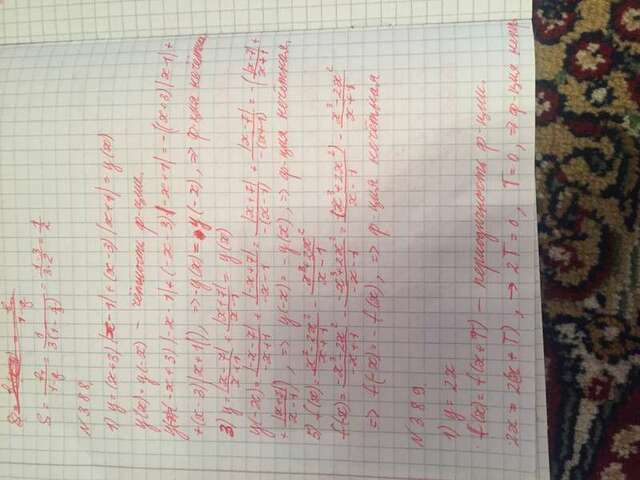 S = b₁/(1-q) = 1/(3(1-1/3)) = (1·3)/(3·2) = 1/2
N 388.
1) y = (x+3)|x-1| + (x-3)|x+1| = y(x)
y(x) = y(-x) — чётность ф-ции.
(-x+3)|-x-1| + (-x-3)|-x+1| = -((x+3)|x-1| +
+(x-3)|x+1|), ⇒ -y(x) = y(-x), ⇒ ф-ция нечётн
3) y = |x-7|/(x+1) + |x+7|/(x-1) = y(x)
y(-x) = |-x-7|/(-x+1) + |-x+7|/(-x-1) = |x+7|/(-(x-1)) + |x-7|/(-(x+1)) = -(|x-7|/(x+1) +
+ |x+7|/(x-1)), ⇒ y(-x) = -y(x), ⇒ ф-ция нечётная.
5) f(x) = (x³-2x²)/(x+1) - (x³+2x²)/(x-1)
f(-x) = (-x³-2x²)/(-x+1) - (-x³+2x²)/(-x-1) = (x³+2x²)/(x-1) - (x³-2x²)/(x+1)
⇒ f(-x) = -f(x), ⇒ ф-ция нечётная
N 389.
1) y = 2x
f(x) = f(x+T) — периодичность ф-ции.
2x = 2(x+T), → 2T=0, T=0, ⇒ ф-ция неп